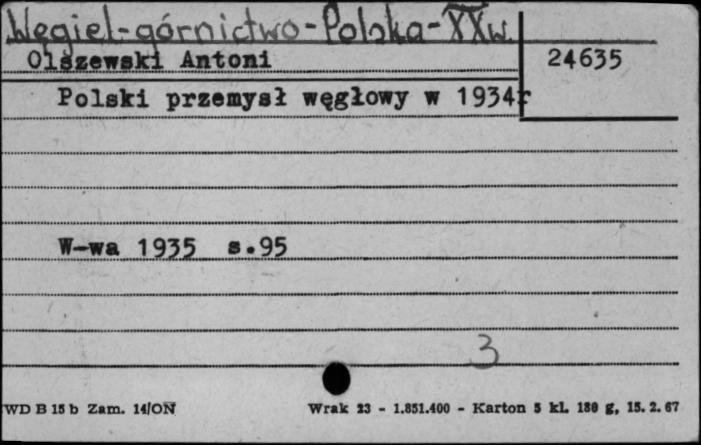 Węgiel-górnictwo-Polska-XXw.
Olszewski Antoni
24635
Polski przemysł węglowy w 1934r
W-wa 1935 s.95
3
WD B 15 b Zam. 14/ON
Wrak 23 - 1.851.400 - Karton 5 kl. 180 g, 15.2.67